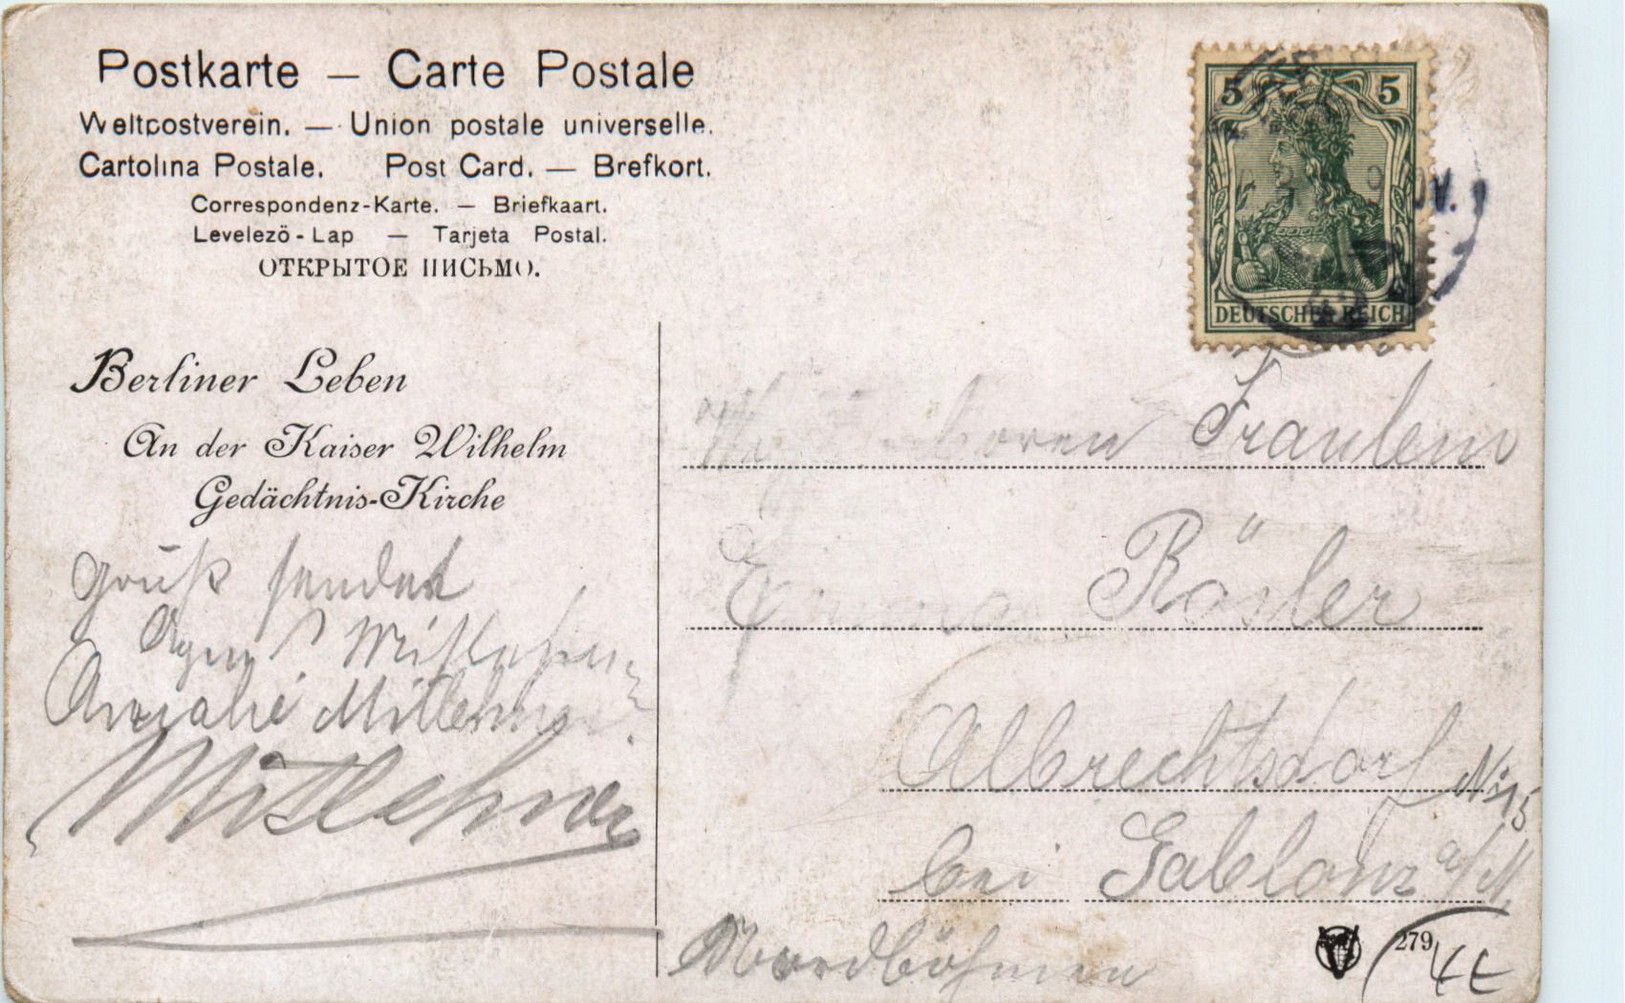 Postkarte – Carte Postale
Weltpostverein. — Union postale universelle.
Cartolina Postale. Post Card. — Brefkort.
Correspondenz-Karte. — Briefkaart.
Levelezö-Lap — Tarjeta Postal.
ОТКРЫТОЕ ПИСЬМО.
Berliner Leben
An der Kaiser Wilhelm
Gedächtnis-Kirche
Gruß sendet
Mittlehner
5 5
DEUTSCHES REICH
Fräulein
Emma Rösler
Albrechtsdorf No 15
bei Gablonz a/N.
Nordböhmen
279